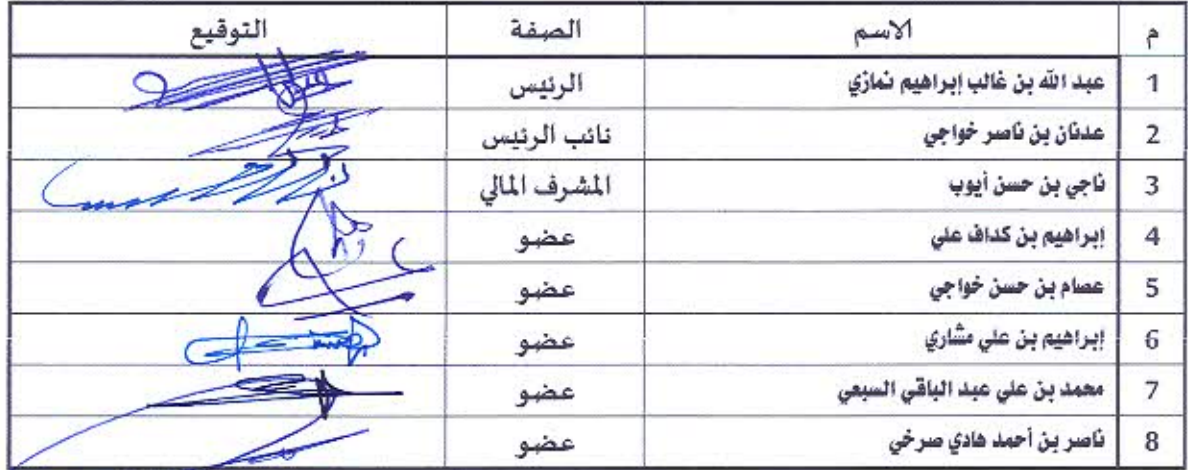 م الاسم الصفة التوقيع
1 عبد الله بن غالب إبراهيم نمازي الرئيس
2 عدنان بن ناصر خواجي نائب الرئيس
3 ناجي بن حسن أيوب المشرف المالي
4 إبراهيم بن كداف علي عضو
5 عصام بن حسن خواجي عضو
6 إبراهيم بن علي مشاري عضو
7 محمد بن علي عبد الباقي السبعي عضو
8 ناصر بن أحمد هادي صرخي عضو